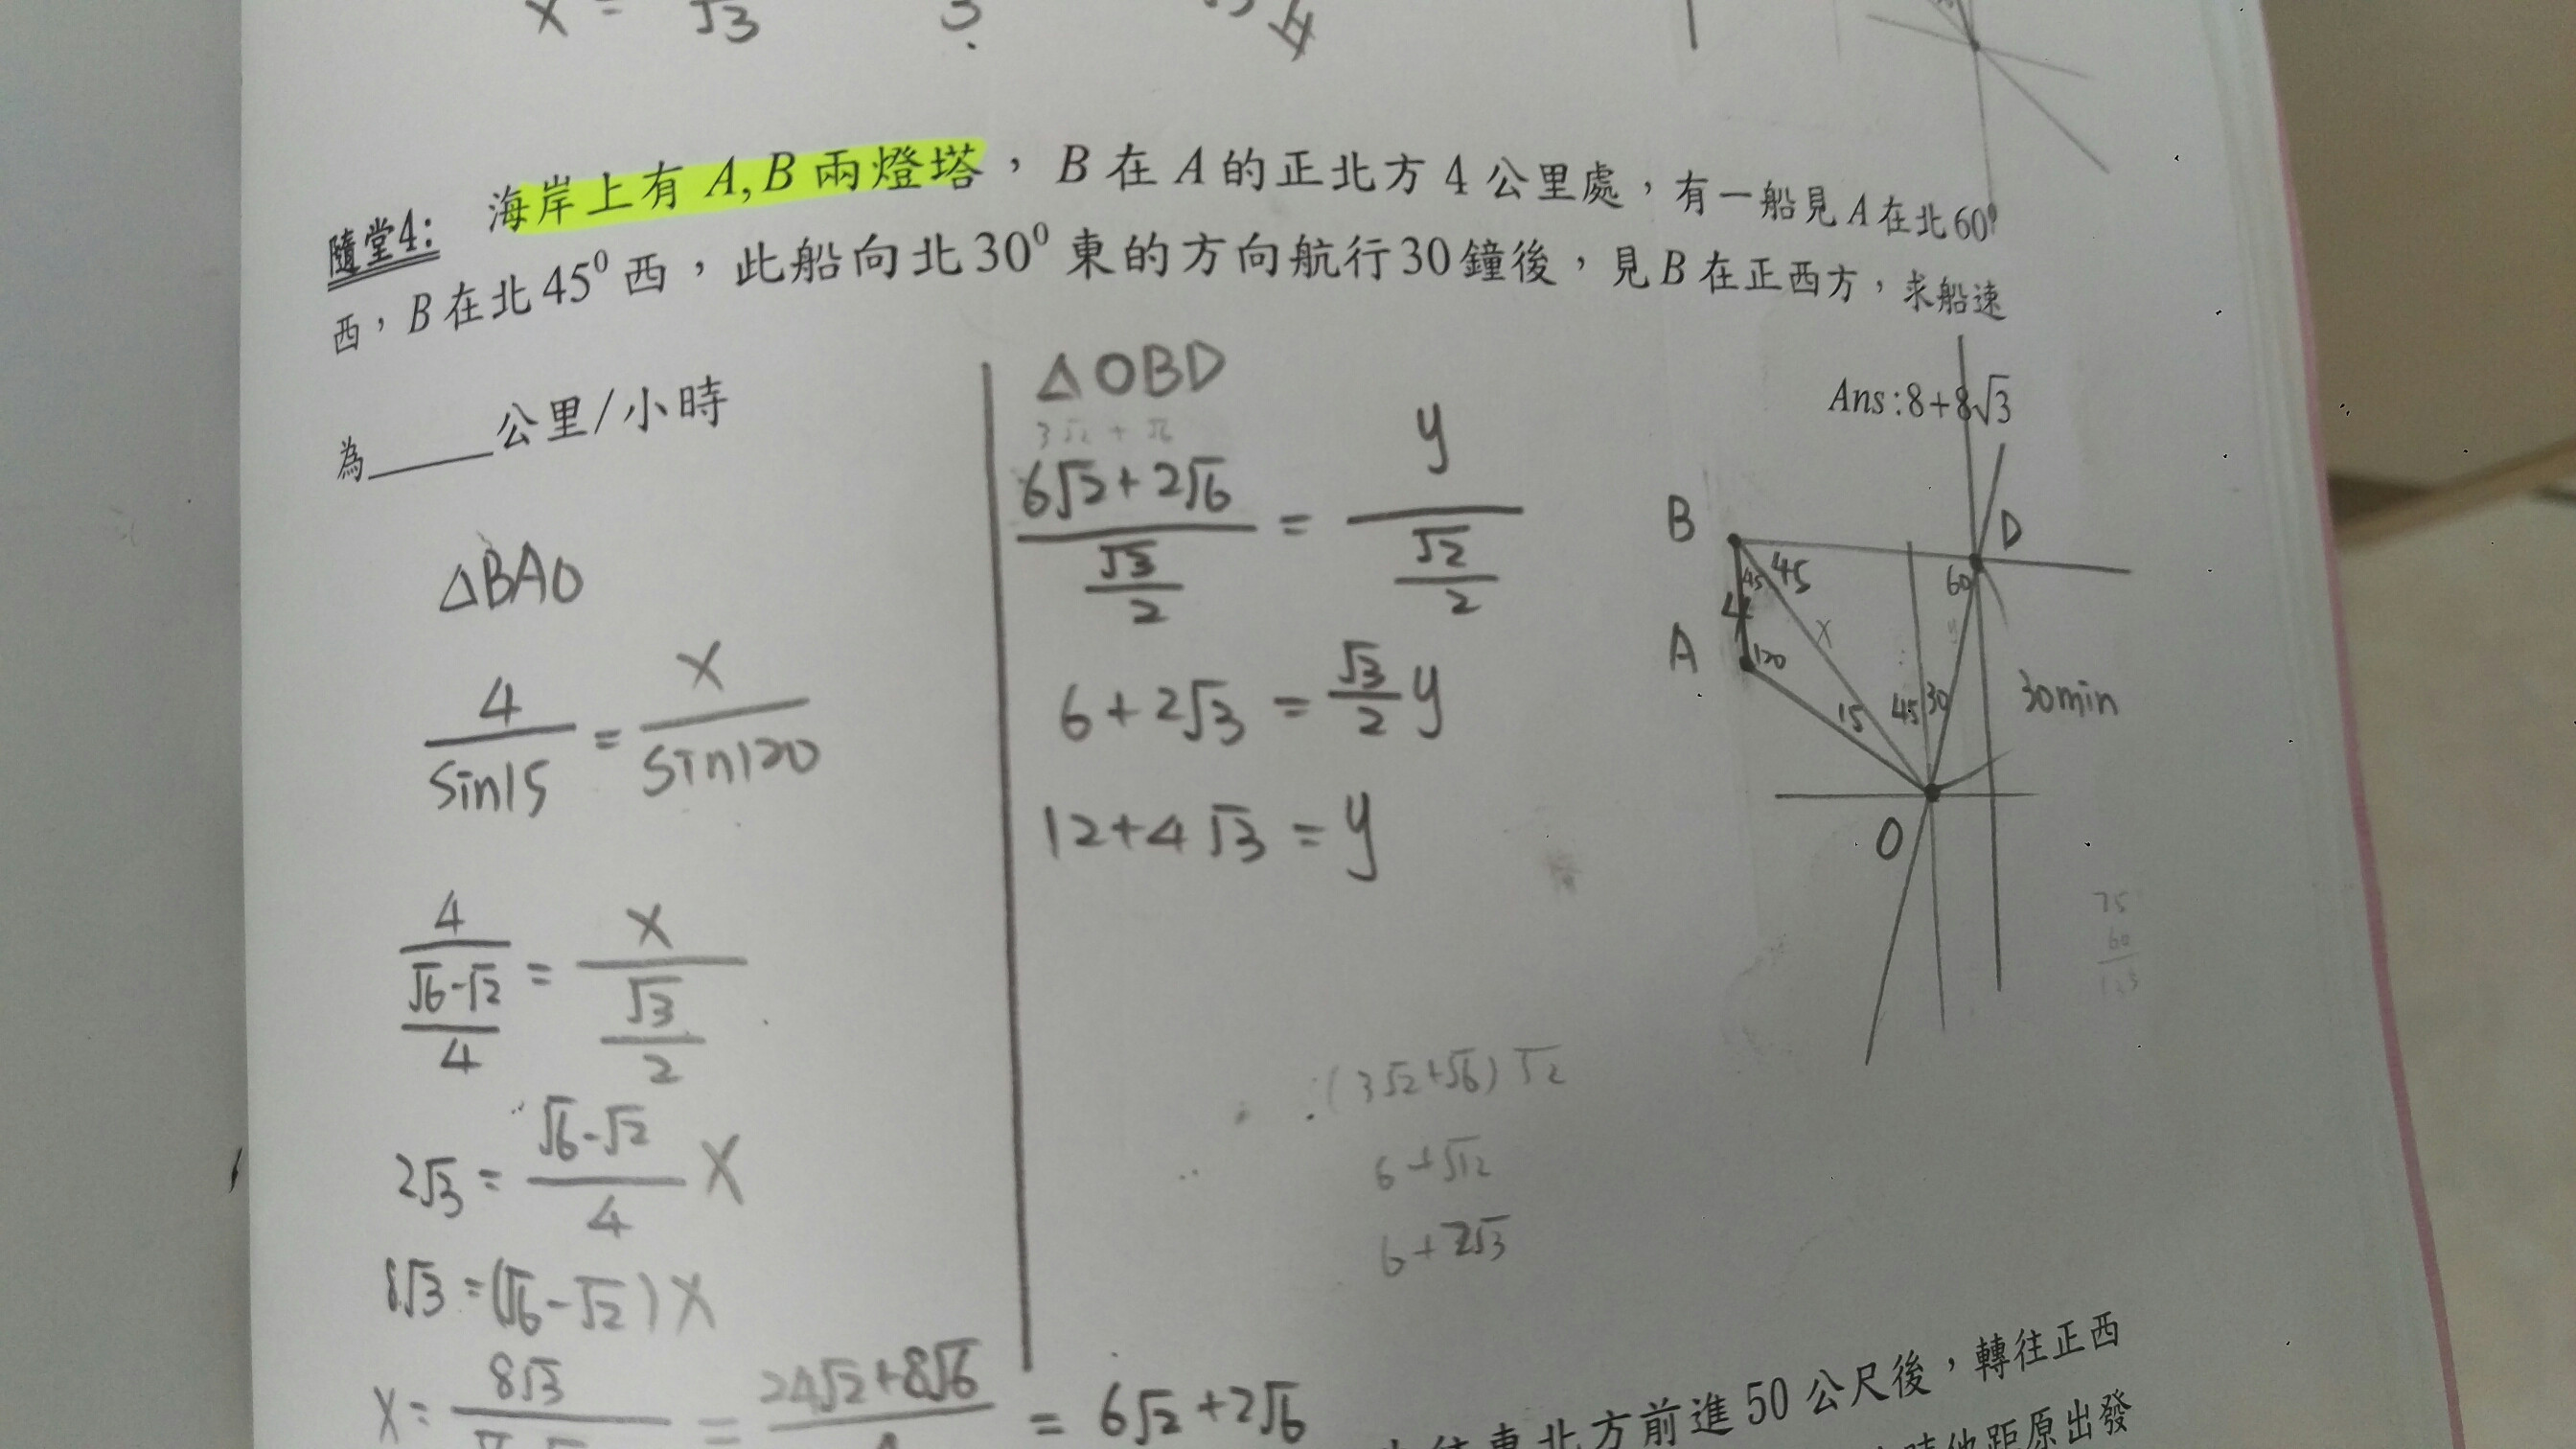 x = √3 3
隨堂4: 海岸上有 A, B 兩燈塔, B 在 A 的正北方 4 公里處,有一船見 A 在北 60⁰
西, B 在北 45⁰ 西,此船向北 30⁰ 東的方向航行 30 鐘後,見 B 在正西方,求船速
為______公里/小時
Ans:8+8√3
△BAO
4/sin15 = x/sin120
4/((√6-√2)/4) = x/(√3/2)
2√3 = (√6-√2)/4 x
8√3 = (√6-√2)x
x = 8√3 = 24√2+8√6 = 6√2+2√6
△OBD
3√2 + √6
(6√2+2√6)/(√3/2) = y/(√2/2)
6+2√3 = √3/2 y
12+4√3 = y
(3√2+√6)√2
6+√12
6+2√3
B
D
45
45
60
4
x
y
A
120
15
45
30
30min
O
75
60
東北方前進 50 公尺後,轉往正西
時他距原出發